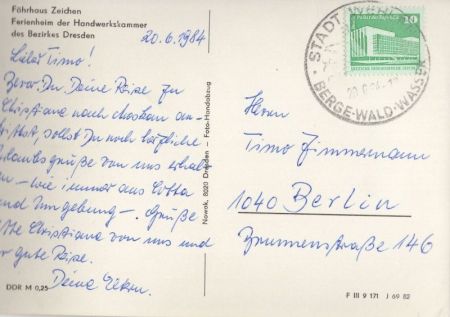 Fährhaus Zeichen
Ferienheim der Handwerkskammer
des Bezirkes Dresden
20.6.1984
Lieber Timo!
Bevor Du Deine Reise zu
Christiana nach Moskau an-
trittst, sollst Du noch herzliche
Urlaubsgrüße von uns erhal
ten - wie immer aus Cotta
und Umgebung -. Grüße
bitte Christiana von uns und
gute Reise.
Deine Eltern.
DDR M 0,25
Nowak, 8020 Dresden - Foto-Handabzug
10
STADT WEHLEN
BERGE-WALD-WASSER
Herrn
Timo Zimmermann
1040 Berlin
Brunnenstraße 146
F III 9 171 J 69 82